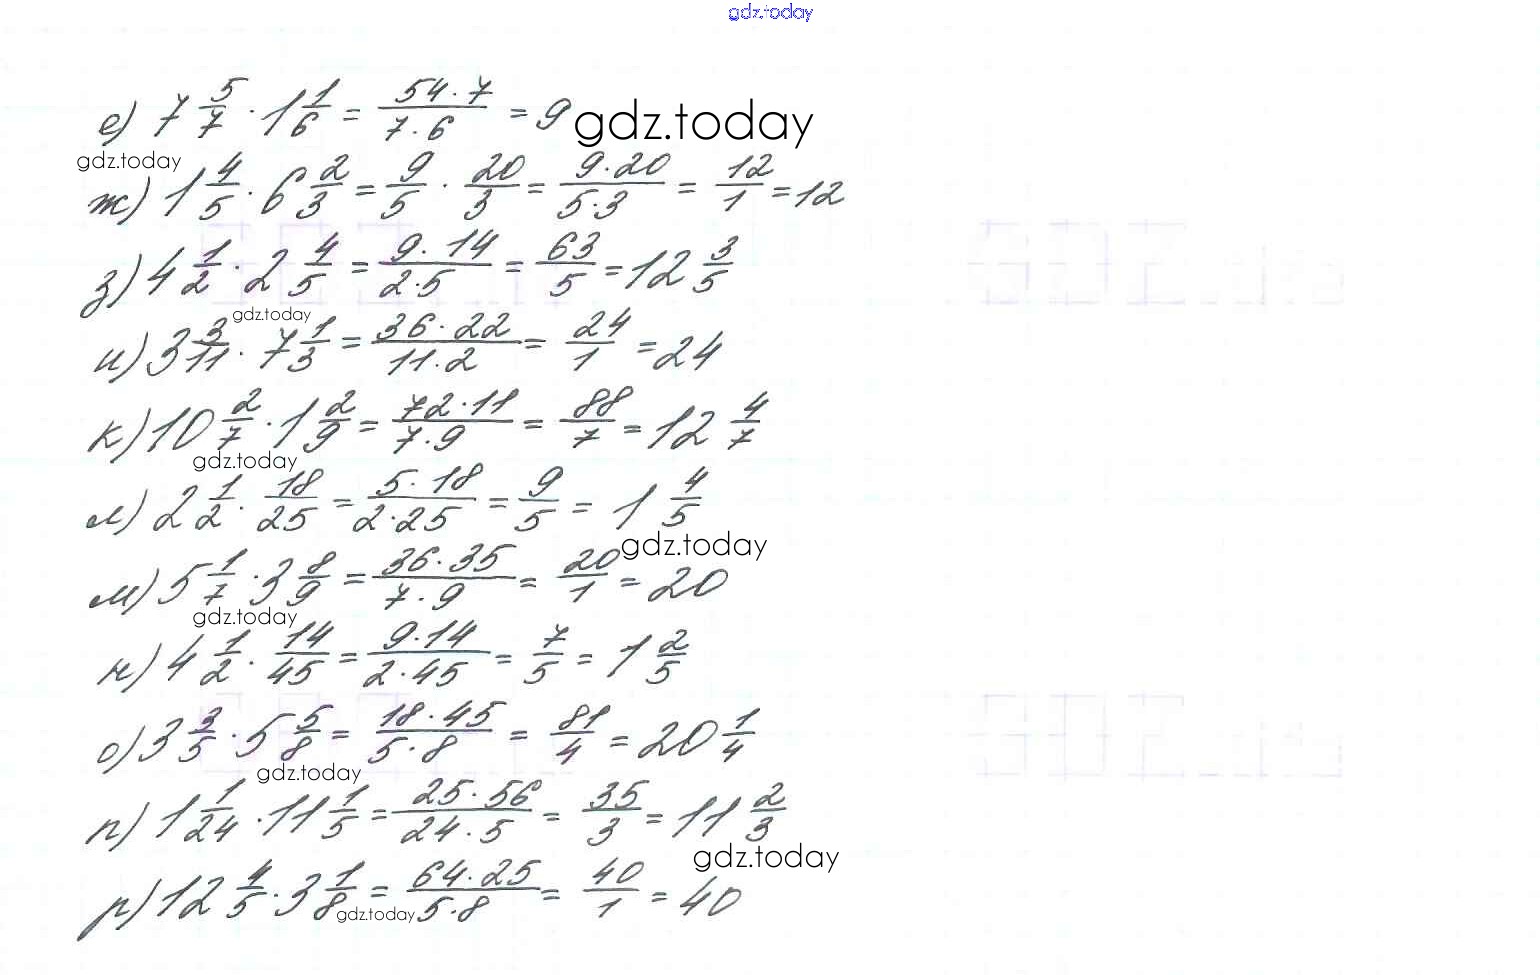 gdz.today
е) 7 5/7 · 1 1/6 = 54·7/7·6 = 9 gdz.today
gdz.today
ж) 1 4/5 · 6 2/3 = 9/5 · 20/3 = 9·20/5·3 = 12/1 = 12
з) 4 1/2 · 2 4/5 = 9·14/2·5 = 63/5 = 12 3/5
gdz.today
и) 3 3/11 · 7 1/3 = 36·22/11·2 = 24/1 = 24
к) 10 2/7 · 1 2/9 = 72·11/7·9 = 88/7 = 12 4/7
gdz.today
л) 2 1/2 · 18/25 = 5·18/2·25 = 9/5 = 1 4/5
gdz.today
м) 5 1/7 · 3 8/9 = 36·35/7·9 = 20/1 = 20
gdz.today
н) 4 1/2 · 14/45 = 9·14/2·45 = 7/5 = 1 2/5
о) 3 3/5 · 5 5/8 = 18·45/5·8 = 81/4 = 20 1/4
gdz.today
п) 1 1/24 · 11 1/5 = 25·56/24·5 = 35/3 = 11 2/3
gdz.today
р) 12 4/5 · 3 1/8 = 64·25/5·8 = 40/1 = 40
gdz.today